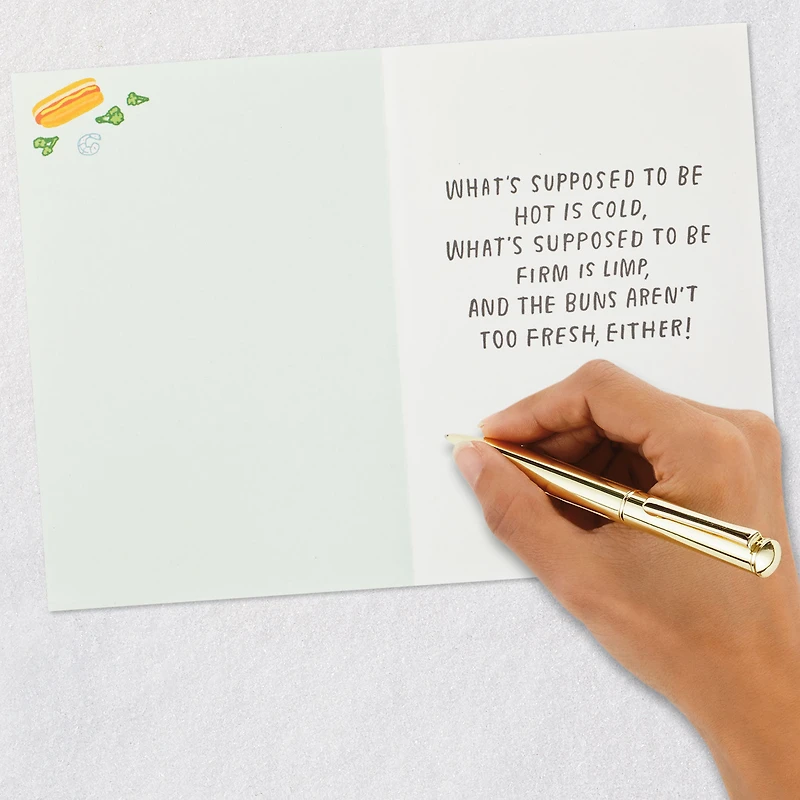 WHAT'S SUPPOSED TO BE
HOT IS COLD,
WHAT'S SUPPOSED TO BE
FIRM IS LIMP,
AND THE BUNS AREN'T
TOO FRESH, EITHER!